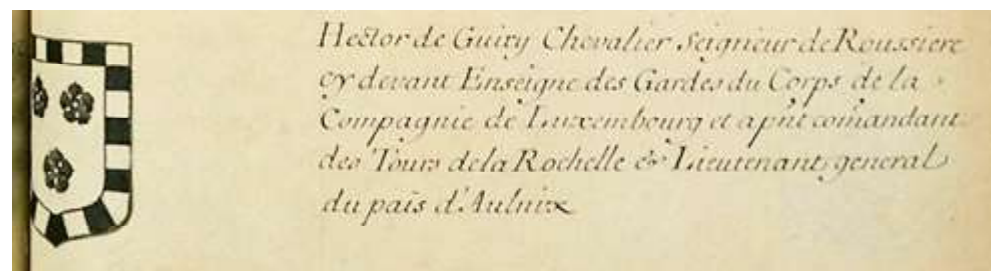 Hector de Guiry Chevalier Seigneur de Roussiere
cy devant Enseigne des Gardes du Corps de la
Compagnie de Luxembourg et apnt comandant
des Tours de la Rochelle & Lieutenant general
du païs d'Aulnix